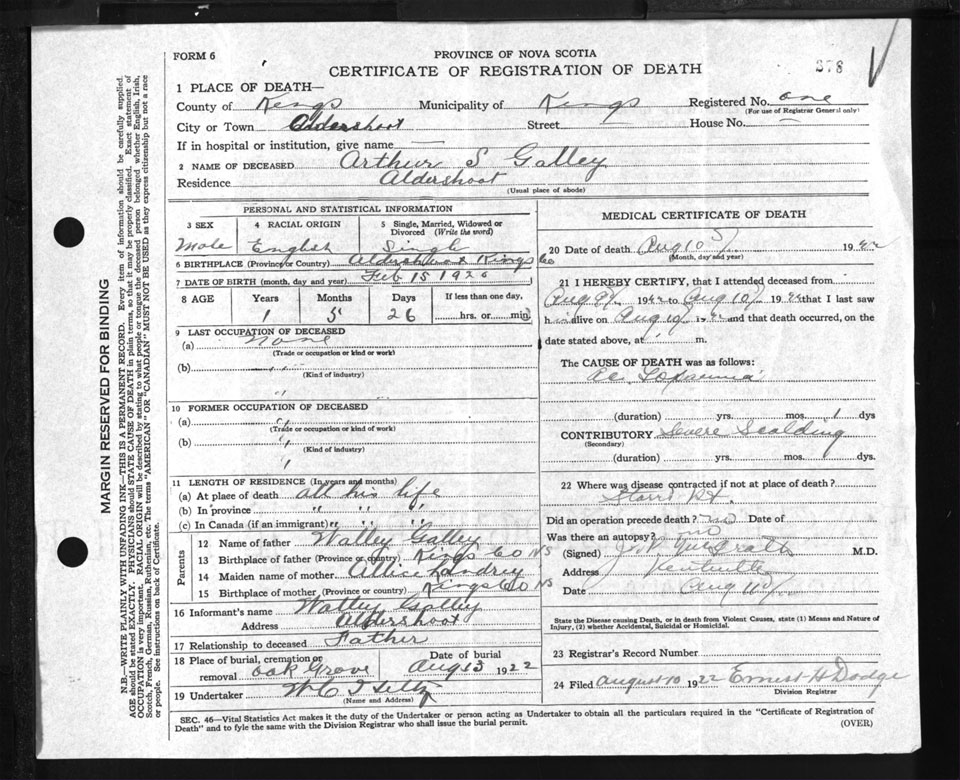 FORM 6
PROVINCE OF NOVA SCOTIA
378
CERTIFICATE OF REGISTRATION OF DEATH
1 PLACE OF DEATH—
County of Kings Municipality of Kings Registered No. one
(For use of Registrar General only)
City or Town Aldershoot Street House No. —
If in hospital or institution, give name —
2 NAME OF DECEASED Arthur S Galley
Residence Aldershoot
(Usual place of abode)
PERSONAL AND STATISTICAL INFORMATION
3 SEX 4 RACIAL ORIGIN 5 Single, Married, Widowed or Divorced (Write the word)
Male English Singl
6 BIRTHPLACE (Province or Country) Aldershoot Kings Co
7 DATE OF BIRTH (month, day and year) Feb 15 1920
8 AGE Years Months Days If less than one day,
1 5 26 hrs. or min.
9 LAST OCCUPATION OF DECEASED
(a) None
(Trade or occupation or kind or work)
(b)
(Kind of industry)
10 FORMER OCCUPATION OF DECEASED
(a) "
(Trade or occupation or kind of work)
(b) "
(Kind of industry)
11 LENGTH OF RESIDENCE (In years and months)
(a) At place of death all his life
(b) In province " " "
(c) In Canada (if an immigrant) " " "
Parents
12 Name of father Walley Galley
13 Birthplace of father (Province or country) Kings Co NS
14 Maiden name of mother Allice Landrey
15 Birthplace of mother (Province or country) Kings Co NS
16 Informant's name Walley Galley
Address Aldershoot
17 Relationship to deceased Father
18 Place of burial, cremation or removal Oak Grove Date of burial Aug 13 1922
19 Undertaker
(Name and Address)
MEDICAL CERTIFICATE OF DEATH
20 Date of death Aug 10 1922
(Month, day and year)
21 I HEREBY CERTIFY, that I attended deceased from
Aug 9 1922 to Aug 10 1922 that I last saw
him alive on Aug 10 1922 and that death occurred, on the
date stated above, at m.
The CAUSE OF DEATH was as follows:
(duration) yrs. mos. 1 dys
CONTRIBUTORY Severe Scalding
(Secondary)
(duration) yrs. mos. dys.
22 Where was disease contracted if not at place of death?
Starrs Pt.
Did an operation precede death? no Date of
Was there an autopsy? no
(Signed) M.D.
Address Kentville
Date Aug 11
State the Disease causing Death, or in death from Violent Causes, state (1) Means and Nature of
Injury, (2) whether Accidental, Suicidal or Homicidal.
23 Registrar's Record Number
24 Filed august 10 1922 Ernest H Dodge
Division Registrar
SEC. 46—Vital Statistics Act makes it the duty of the Undertaker or person acting as Undertaker to obtain all the particulars required in the "Certificate of Registration of
Death" and to fyle the same with the Division Registrar who shall issue the burial permit.
(OVER)
MARGIN RESERVED FOR BINDING
N.B.—WRITE PLAINLY WITH UNFADING INK—THIS IS A PERMANENT RECORD. Every item of information should be carefully supplied.
AGE should be stated EXACTLY. PHYSICIANS should STATE CAUSE OF DEATH in plain terms, so that it may be properly classified. Exact statement of
OCCUPATION is very important. RACIAL ORIGIN will be described by stating to what people or tongue the deceased person belonged whether English, Irish,
Scotch, French, German, Russian, Ruthenian, etc. The terms "AMERICAN" OR "CANADIAN" MUST NOT BE USED as they express citizenship but not a race
or people. See instructions on back of Certificate.